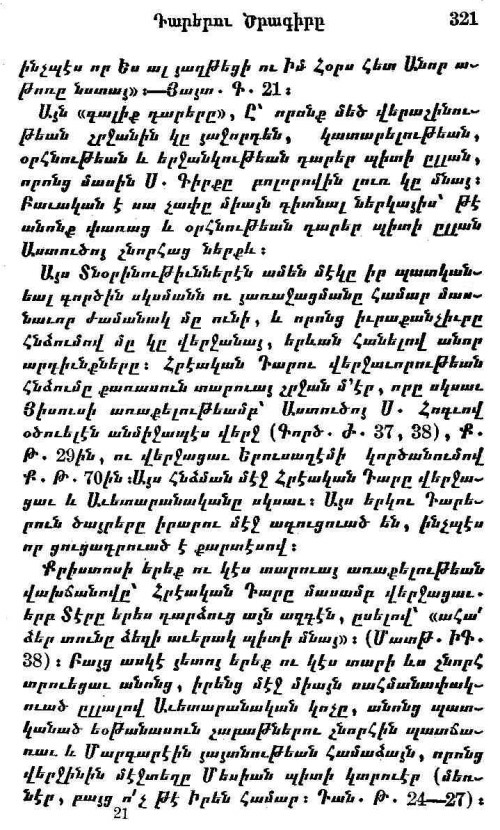 Դարերու Ծրագիրը 321
ինչպէս որ Ես ալ յաղթեցի ու Իմ Հօրս հետ Անոր ա-
թոռը նստայ»։—Յայտ. Գ. 21։
Այն «գալիք դարերը», Ը՝ որոնք մեծ վերաշինու-
թեան շրջանին կը յաջորդեն, կատարելութեան,
օրհնութեան և երջանկութեան դարեր պիտի ըլլան,
որոնց մասին Ս. Գիրքը բոլորովին լուռ կը մնայ։
Բաւական է սա չափը միայն գիտնալ ներկայիս՝ թէ
անոնք փառաց և օրհնութեան դարեր պիտի ըլլան
Աստուծոյ շնորհաց ներքև։
Այս Տնօրինութիւններէն ամեն մէկը իր պատկան-
եալ գործին սկսմանն ու յառաջացմանը համար մաս-
նաւոր ժամանակ մը ունի, և որոնց իւրաքանչիւրը
Հնձումով մը կը վերջանայ, երևան հանելով անոր
արդիւնքները։ Հրէական Դարու վերջաւորութեան
Հնձումը քառասուն տարուայ շրջան մ՚էր, որը սկսաւ
Յիսուսի առաքելութեամբ՝ Աստուծոյ Ս. Հոգւով
օծուելէն անմիջապէս վերջ (Գործ. Ժ. 37, 38), Ք.
Թ. 29ին, ու վերջացաւ Երուսաղէմի կործանումով
Ք. Թ. 70ին։ Այս Հնձման մէջ Հրէական Դարը վերջա-
ցաւ և Աւետարանականը սկսաւ։ Այս երկու Դարե-
րուն ծայրերը իրարու մէջ ագուցուած են, ինչպէս
որ ցուցադրուած է քարտէսով։
Քրիստոսի երեք ու կէս տարուայ առաքելութեան
վախճանովը՝ Հրէական Դարը մասամբ վերջացաւ.
երբ Տէրը երես դարձուց այն ազգէն, ըսելով՝ «ահա՛
ձեր տունը ձեզի աւերակ պիտի մնայ»։ (Մատթ. ԻԳ.
38)։ Բայց ասկէ յետոյ երեք ու կէս տարի ևս շնորհ
տրուեցաւ անոնց, իրենց մէջ միայն սահմանափակ-
ուած ըլլալով Աւետարանական կոչը, անոնց պատ-
կանած եօթանասուն շաբաթներու շնորհին պատճա-
ռաւ և Մարգարէին յայտնութեան համաձայն, որոնց
վերջինին մէջտեղը Մեսիան պիտի կտրուէր (մեռ-
նէր, բայց ո՛չ թէ Իրեն համար։ Դան. Թ. 24—27)։
21